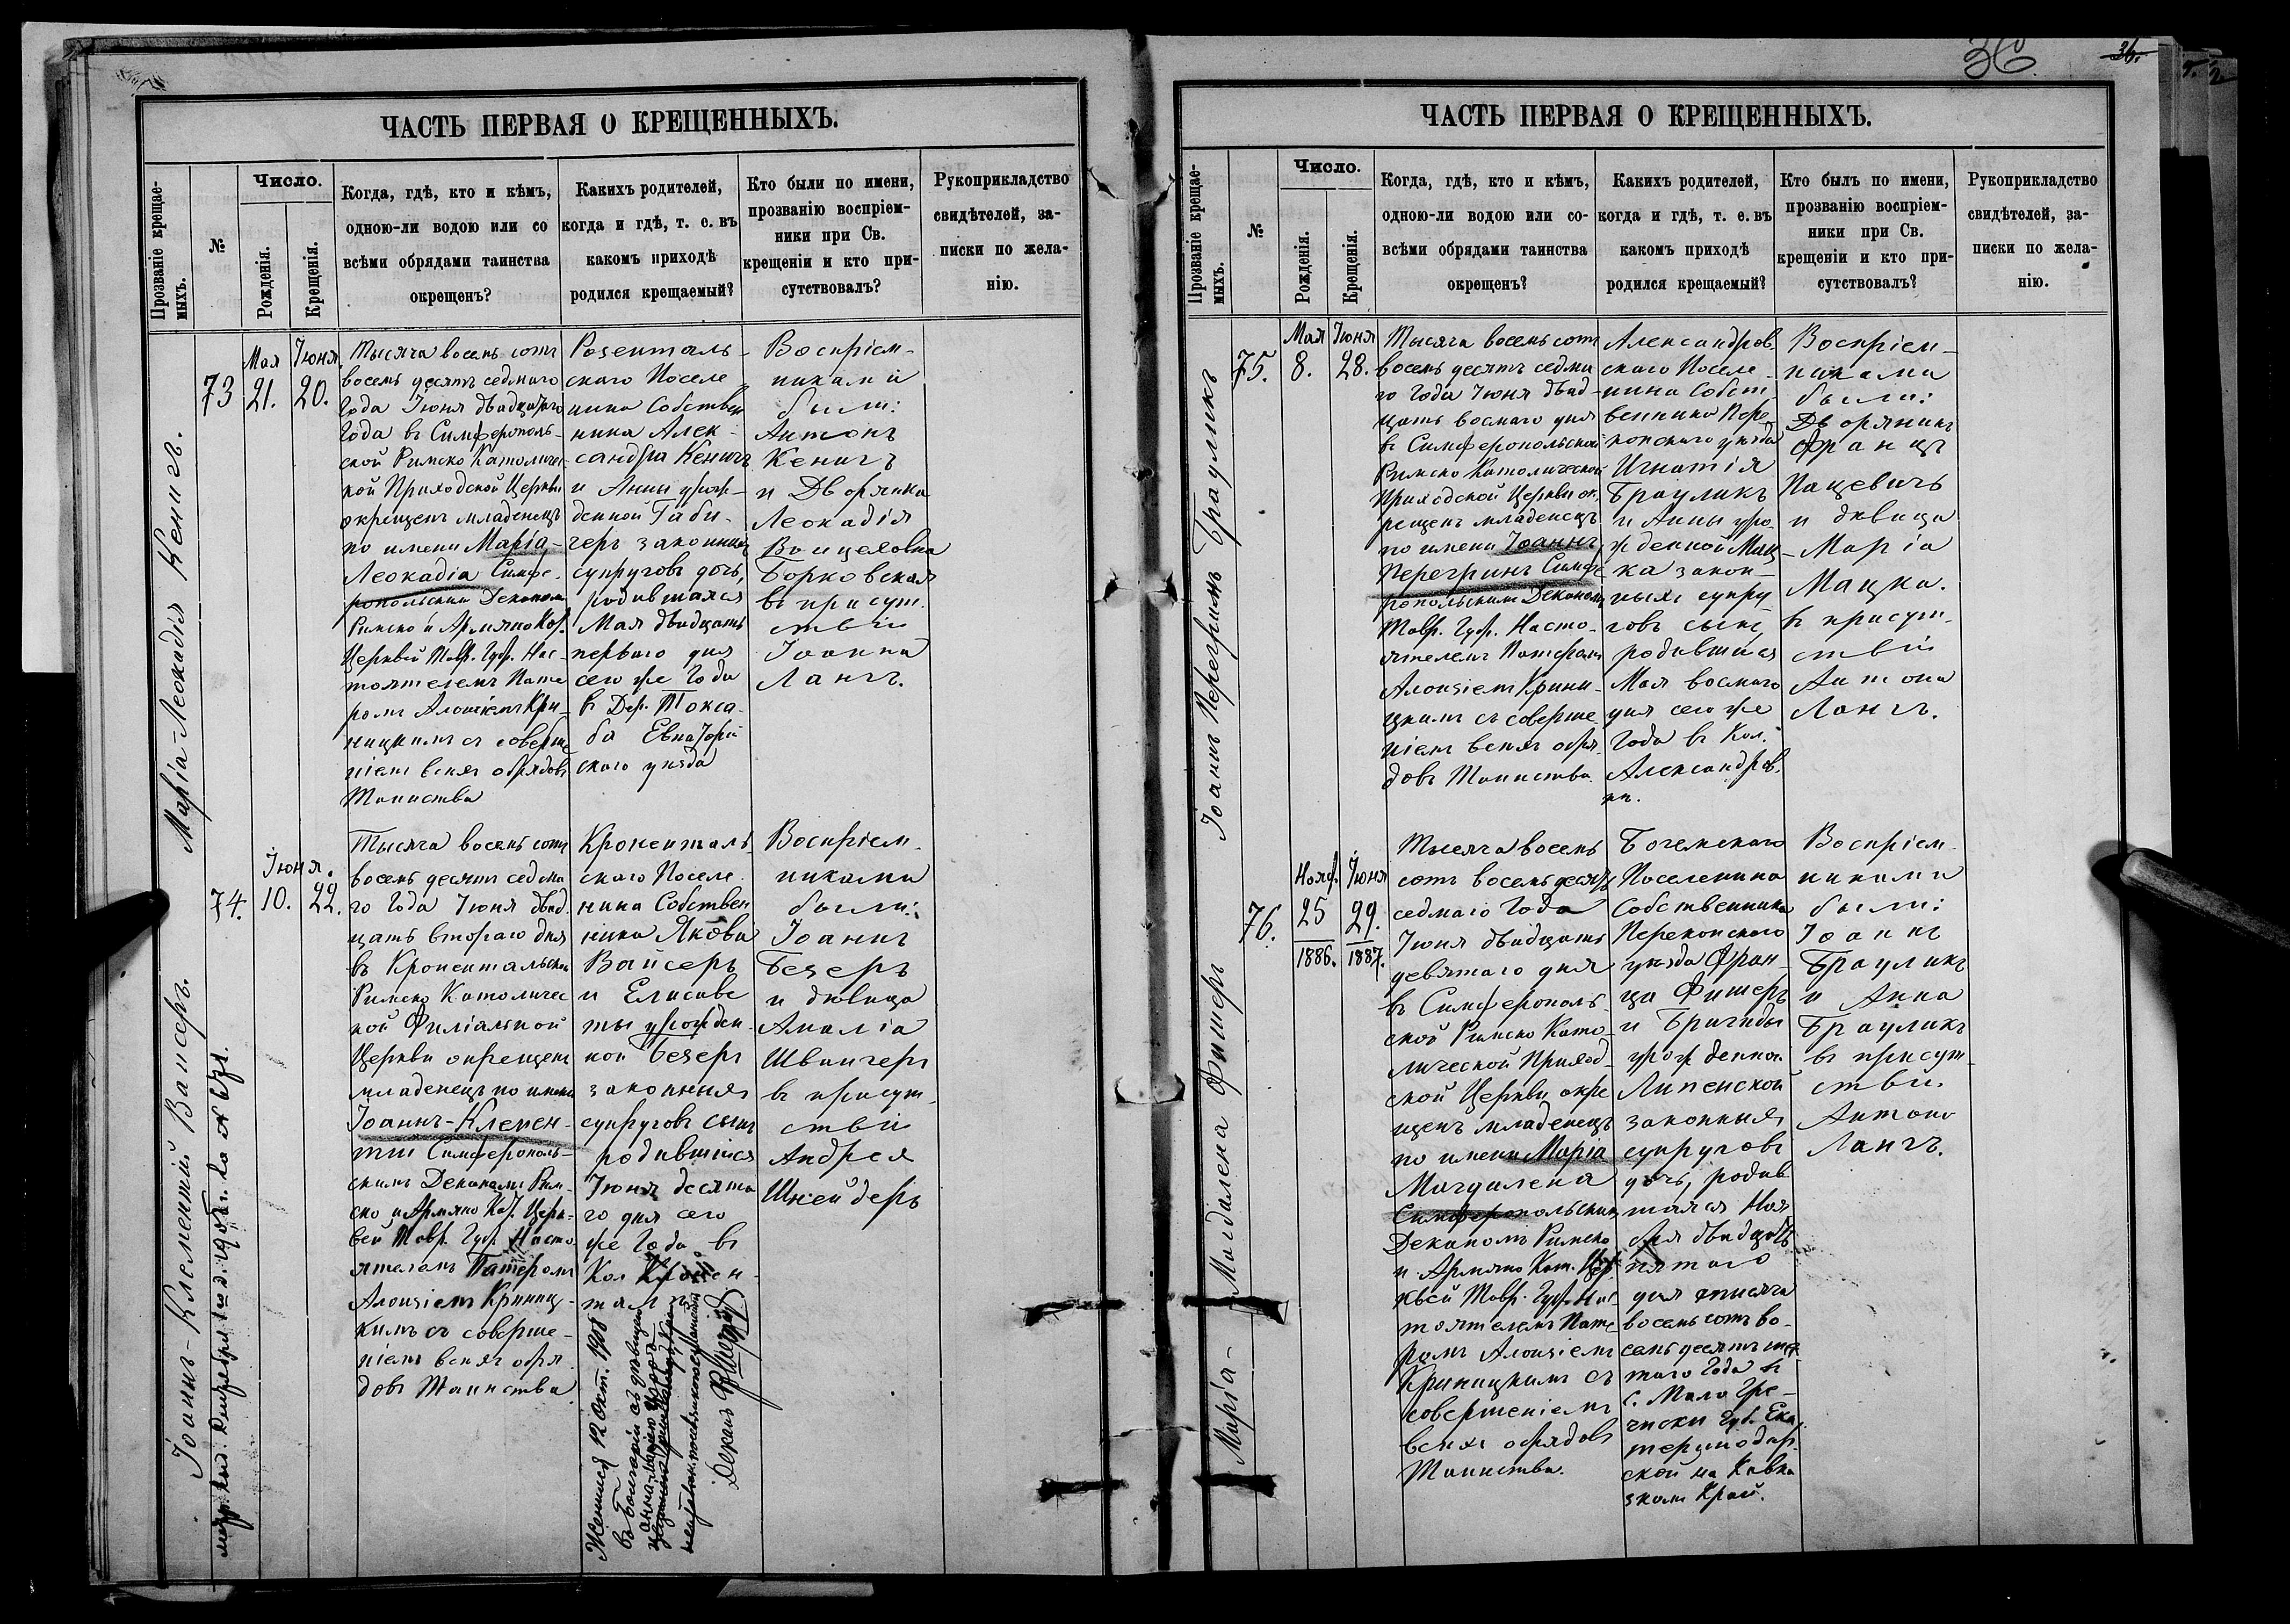 ЧАСТЬ ПЕРВАЯ О КРЕЩЕННЫХЪ.
Прозваніе крещае-
мыхъ.
№
Число.
Рожденія.
Крещенія.
Когда, гдѣ, кто и кѣмъ,
одною-ли водою или со
всѣми обрядами таинства
окрещенъ?
Какихъ родителей,
когда и гдѣ, т. е. въ
какомъ приходѣ
родился крещаемый?
Кто были по имени,
прозванію воспріем-
ники при Св.
крещеніи и кто при-
сутствовалъ?
Рукоприкладство
свидѣтелей, за-
писки по жела-
нію.
Марія-Леокадія Кенигъ.
73
Мая
21.
Іюня
20.
Тысяча восемь сотъ
восемь десятъ седмого
Года Іюня двадцатого
Года въ Симферополь-
ской Римско Католичес-
кой Приходской Церкви
окрещенъ младенецъ
по имени Марія-
Леокадіа Симфе-
ропольскимъ Деканом
Римско и Армяно Каѳ.
Церквей Тавр. Губ. Нас-
тоятелемъ Пате
ромъ Алоизіемъ Кри-
ницкимъ съ соверше
ніем всѣхъ обрядовъ
Таинства
Розенталь-
скаго Поселе
нина Собствен
ника Алек-
сандра Кенигъ
и Анны урож-
денной Габи-
геръ законныхъ
супруговъ дочь,
родившаяся
Мая двадцать
перваго дня
сего же Года
въ Дер. Токса-
ба Евпаторій
скаго уѣзда
Воспріем-
никами
были:
Антонъ
Кенигъ
и Дворянка
Леокадія
Войцеховна
Борковская
въ присут-
ствіи
Іоанна
Лангъ.
Іоаннъ-Клементій Вайсеръ.
74.
Іюня.
10.
22.
Тысяча восемь сотъ
восемь десятъ седма
го Года Іюня двад
цать втораго дня
въ Кронентальской
Римско Католичес
кой Филіальной
Церкви окрещенъ
младенецъ по имени
Іоаннъ-Клемен-
тій Симферополь-
скимъ Деканомъ Рим-
ско и Армяно Каѳ. Церк-
вей Тавр. Губ. Насто-
ятелемъ Патеромъ
Алоизіемъ Криниц-
кимъ съ соверше-
ніемъ всѣхъ обря
довъ Таинства
Кроненталь-
скаго Поселе-
нина Собствен
ника Якова
Вайсеръ
и Елисаве
ты урожден-
ной Бегеръ
законныхъ
супруговъ сынъ
родившійся
Іюня десята
го дня сего
же Года въ
Кол Кронен-
таль
Воспріем-
никами
были:
Іоаннъ
Бегеръ
и дѣвица
Амалія
Швангеръ
въ присут-
ствіи
Андрея
Шнейдеръ
Женился 12 Окт. 1908
въ Болгаріи съ дѣвицею
Деканъ
ЧАСТЬ ПЕРВАЯ О КРЕЩЕННЫХЪ.
36
36.
Прозваніе крещае-
мыхъ.
№
Число.
Рожденія.
Крещенія.
Когда, гдѣ, кто и кѣмъ,
одною-ли водою или со-
всѣми обрядами таинства
окрещенъ?
Какихъ родителей,
когда и гдѣ, т. е. въ
какомъ приходѣ
родился крещаемый?
Кто былъ по имени,
прозванію воспріем-
ники при Св.
крещеніи и кто при-
сутствовалъ?
Рукоприкладство
свидѣтелей, за-
писки по жела-
нію.
Іоаннъ Перегринъ Брауликъ
75.
Мая
8.
Іюня
28.
Тысяча восемь сотъ
восемь десятъ седма
го Года Іюня двад-
цать восмаго дня
въ Симферопольской
Римско Католической
Приходской Церкви ок-
рещенъ младенецъ
по имени Іоаннъ
Перегринъ Симфе
ропольскимъ Деканомъ
Тавр. Губ. Насто-
ятелемъ Патеромъ
Алоизіемъ Крини-
цкимъ съ соверше
ніемъ всѣхъ обря-
довъ Таинства
Александров
скаго Поселе-
нина Собст-
венника Пере
копскаго уѣзда
Игнатія
Брауликъ
и Анны уро-
жденной Мац-
ка закон-
ныхъ супру
говъ сынъ
родившійся
Мая восмаго
дня сего же
Года въ Кол.
Александров-
кѣ.
Воспріем-
никами
были:
Дворянинъ
Францъ
Пацевичъ
и дѣвица
Марія
Мацка.
въ присут-
ствіи
Антона
Лангъ.
Марія-Магдалена Фишеръ
76.
Нояб.
25
1886.
Іюня
29.
1887.
Тысяча восемь
сотъ восемь десятъ
седмаго Года
Іюня двадцать
девятаго дня
въ Симферополь-
ской Римско Като-
лической Приход-
ской Церкви окре
щенъ младенецъ
по имени Марія
Магдалена
Симферопольскимъ
Деканомъ Римско
и Армяно Кат. Цер-
квей Тавр. Губ. Нас-
тоятелемъ Пате
ромъ Алоизіемъ
Криницкимъ съ
совершеніемъ
всѣхъ обрядовъ
Таинства.
Богемскаго
Поселенина
Собственника
Перекопскаго
уѣзда Фран-
ца Фишеръ
и Бригиды
урожденной
Липенской
законныхъ
супруговъ
дочь, родив
шаяся Ноя
бря двадцать
пятого
дня тысяча
восемь сотъ во-
семь десятъ шес-
таго Года въ
с. Мало Гре-
чиски Губ. Ека
теринодар-
ской на Кавка
зкомъ Край.
Воспріем-
никами
были:
Іоаннъ
Брауликъ
и Анна
Брауликъ
въ присут-
ствіи.
Антона
Лангъ.